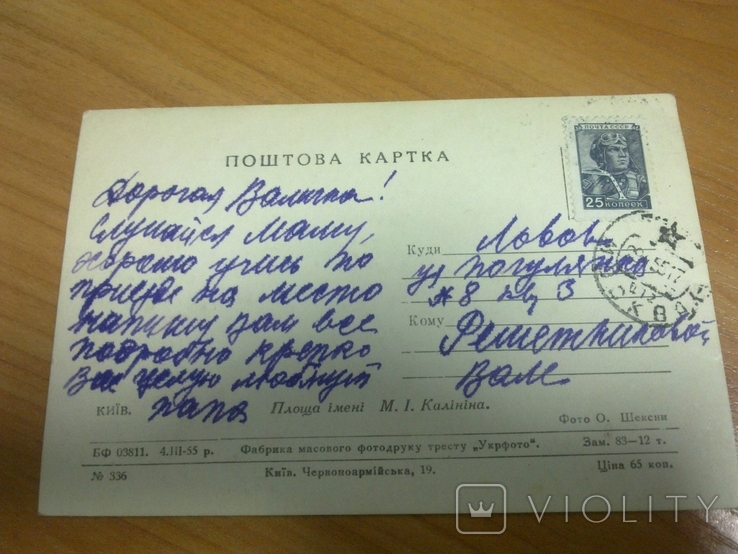 ПОШТОВА КАРТКА
ПОЧТА СССР
25 КОПЕЕК
Дорогая Валичка!
Слушайся маму,
хорошо учись по
приезде на место
напишу вам все
подробно крепко
вас целую любящий
папа
Куди Львов
ул Погулянка
№ 8 кв 3
Кому Решетниковой
Вале
КИЇВ. Площа імені М. І. Калініна.
Фото О. Шексни
БФ 03811. 4.III-55 р. Фабрика масового фотодруку тресту „Укрфото". Зам. 83—12 т.
№ 336 Київ, Червоноармійська, 19. Ціна 65 коп.
VIOLITY